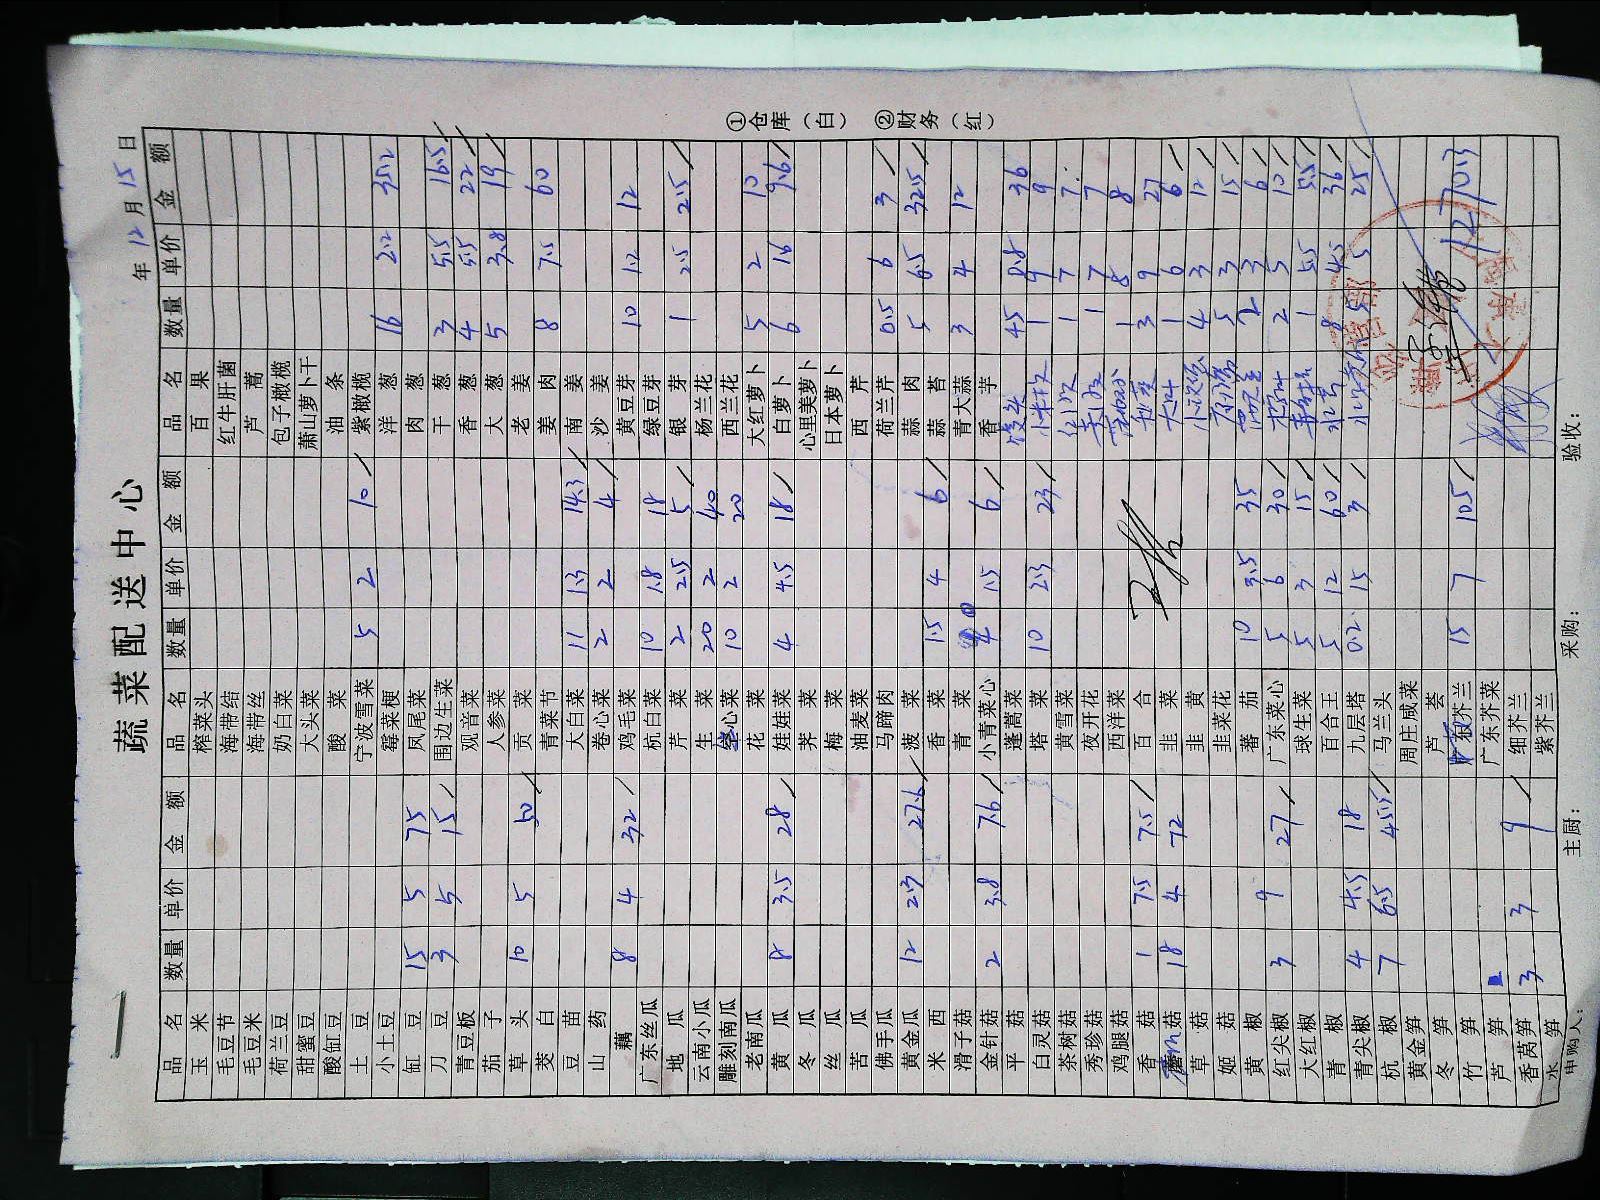 蔬菜配送中心
年 12 月 15 日
品名 数量 单价 金额 品名 数量 单价 金额 品名 数量 单价 金额
玉米 榨菜头 百果
毛豆节 海带结 红牛肝菌
毛豆米 海带丝 芦蒿
荷兰豆 奶白菜 包子橄榄
甜蜜豆 大头菜 萧山萝卜干
酸缸豆 酸菜 油条
土豆 宁波雪菜 5 2 10 紫橄榄
小土豆 霉菜梗 洋葱 16 2.2 35.2
缸豆 15 5 75 凤尾菜 肉葱
刀豆 3 5 15 围边生菜 干葱 3 5.5 16.5
青豆板 观音菜 香葱 4 5.5 22
茄子 人参菜 大葱 5 3.8 19
草头 10 5 50 贡菜 老姜
茭白 青菜节 姜肉 8 7.5 60
豆苗 大白菜 11 1.3 14.3 南姜
山药 卷心菜 2 2 4 沙姜
藕 8 4 32 鸡毛菜 黄豆芽 10 1.2 12
广东丝瓜 杭白菜 10 1.8 18 绿豆芽
地瓜 芹菜 2 2.5 5 银芽 1 2.5 2.5
云南小瓜 生菜 20 2 40 杨兰花
雕刻南瓜 空心菜 10 2 20 西兰花
老南瓜 花菜 大红萝卜 5 2 10
黄瓜 8 3.5 28 娃娃菜 4 4.5 18 白萝卜 6 1.6 9.6
冬瓜 荠菜 心里美萝卜
丝瓜 梅菜 日本萝卜
苦瓜 油麦菜 西芹
佛手瓜 马蹄肉 荷兰芹 0.5 6 3
黄金瓜 12 2.3 27.6 菠菜 蒜肉 5 6.5 32.5
米西 香菜 1.5 4 6 蒜苔
滑子菇 青菜 青大蒜 3 4 12
金针菇 2 3.8 7.6 小青菜心 4 1.5 6 香芋
平菇 蓬蒿菜 馒头 45 0.8 36
白灵菇 塔菜 10 2.3 23 1 9 9
茶树菇 黄雪菜 1 7 7
秀珍菇 夜开花 1 7 7
鸡腿菇 西洋菜 1 8 8
香菇 1 7.5 7.5 百合 3 9 27
蘑菇 18 4 72 韭菜 1 6 6
草菇 韭黄 4 3 12
姬菇 韭菜花 5 3 15
黄椒 蕃茄 10 3.5 35 2 3 6
红尖椒 3 9 27 广东菜心 5 6 30 2 5 10
大红椒 球生菜 5 3 15 1 5.5 5.5
青椒 百合王 5 12 60 8 4.5 36
青尖椒 4 4.5 18 九层塔 0.2 15 3 5 5 25
杭椒 7 6.5 45.5 马兰头
黄金笋 周庄咸菜
冬笋 芦荟
竹笋 芥兰 15 7 105 1270.3
芦笋 广东芥菜
香莴笋 3 3 9 细芥兰
水笋 紫芥兰
申购人： 主厨： 采购： 验收：
①仓库（白） ②财务（红）